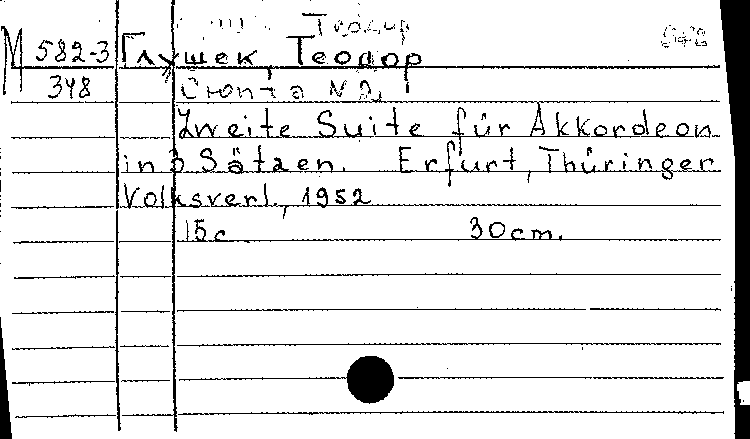 Теодор
М 582-3 Глушек, Теодор
348 Сюита N 2,
Zweite Suite für Akkordeon
in 3 Sätzen. Erfurt, Thüringer
Volksverl., 1952
15 c. 30 cm.